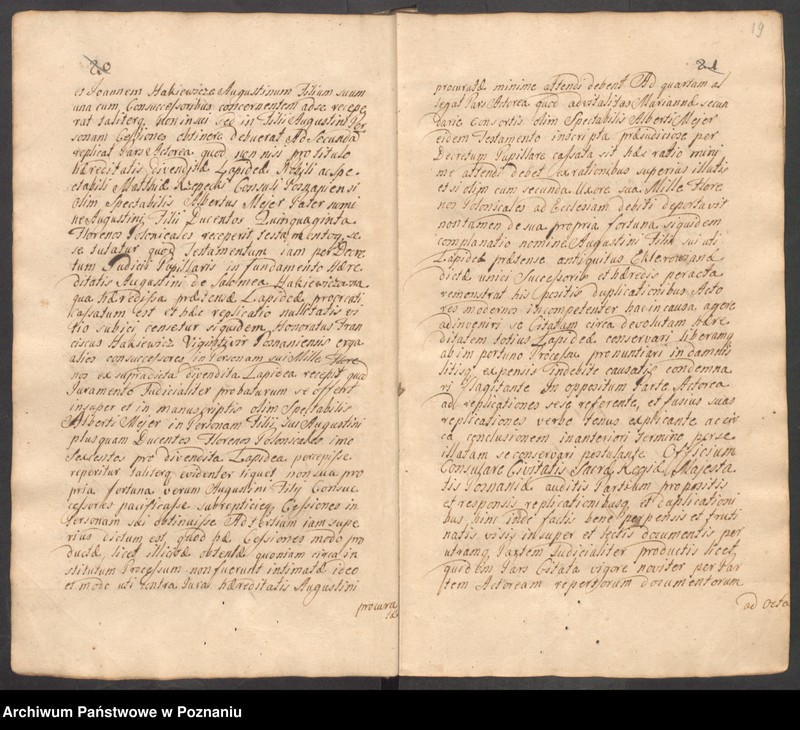 20
et Joannem Hakiewicze Augustinum Filium suum
una cum Consuccessoribus concernentem ad se recepe
rat taliterq. Non in sui sed in Filii Augustini Per
sonam Cessiones obtinere debuerat Ad Secunda
replicat Pars Actorea quod non nisi pro titulo
hæreditatis divenditæ Lapideæ Nobili ac Spe
ctabili Matthiæ Consuli Posnaniensi
olim Spectabilis Albertus Mejer Pater nomi
ne Augustini Filii Ducentos Quinquaginta
Florenos Polonicales receperit Testamentoq. se
se tutatur quod Testamentum iam per Decre
tum Judicii Pupillaris in fundamento Hære
ditatis Augustini de Salomea Hakiewiczowna
qua hæredissa prætensæ Lapideæ procreati
Cassatum est et hæc replicatio nullitatis vi
tio subjici censetur siquidem Honoratus Fran
ciscus Hakiewicz Vigintivir Posnaniensis erga
alios consuccessores in Personam sui Mille Flore
nos ex supradicta divendita Lapidea recepit quod
Juramento Judicialiter probaturum se offert
insuper et in manuscriptis olim Spectabilis
Alberti Mejer in Personam Filii sui Augustini
plusquam Ducentos Florenos Polonicales imo
Sexcentos pro divendita Lapidea percepisse
reperitur taliterq. evidenter liquet non sua pro
pria fortuna verum Augustini Filij Consuc
cessores pacificasse subrepticieq. Cessiones in
Personam sui obtinuisse Ad tertium iam supe
rius dictum est, quod hæ Cessiones modo pro
ductæ, licet illicitæ obtentæ quoniam circa in
stitutum Processum non fuerunt intimatæ ideo
et modo uti contra Jura hæreditatis Augustini
procura
tæ
19
21
procuratæ minime attendi debent Ad quartam al
legat Pars Actorea quod advitalitas Mariannæ secun
dariæ Consortis olim Spectabilis Alberti Mejer
eidem Testamento inscripta præjudiciose per
Decretum Pupillare cassata sit hæc ratio mini
me attendi debet ex rationibus superius illatis
et si olim cum secunda Uxore sua Mille Flore
nos Polonicales ad Ecclesiam debiti deportavit
non tamen de sua propria fortuna siquidem
complanatio nomine Augustini Filii sui uti
Lapideæ præsense antiquitus Eklerowzana
dictæ unici Successoris et hæredis peracta
remonstrat his positis duplicationibus Acto
res modernos incompetenter hac in causa agere
adinveniri se Citatam circa devolutam hære
ditatem totius Lapideæ conservari liberamq.
ab importuno Processu pronuntiari in damnis
litisq. expensis indebite causatis condemna
ri flagitante In oppositum Parte Actorea
ad replicationes sese referente, et fusius suas
replicationes verbo tenus explicante ac cir
ca conclusionem in anteriori termino per se
illatam se conservari postulante. Officium
Consulare Civitatis Sacræ Regiæ Majesta
tis Posnaniæ auditis Partium propositis
et responsis replicationibusq. et duplicationi
bus hinc inde factis bene perpensis et truti
natis visis insuper et lectis documentis per
utramq. Partem Judicialiter productis licet
quidem Pars Citata vigore noviter per Par
tem Actoream repertorum documentorum
ad Octa
Archiwum Państwowe w Poznaniu